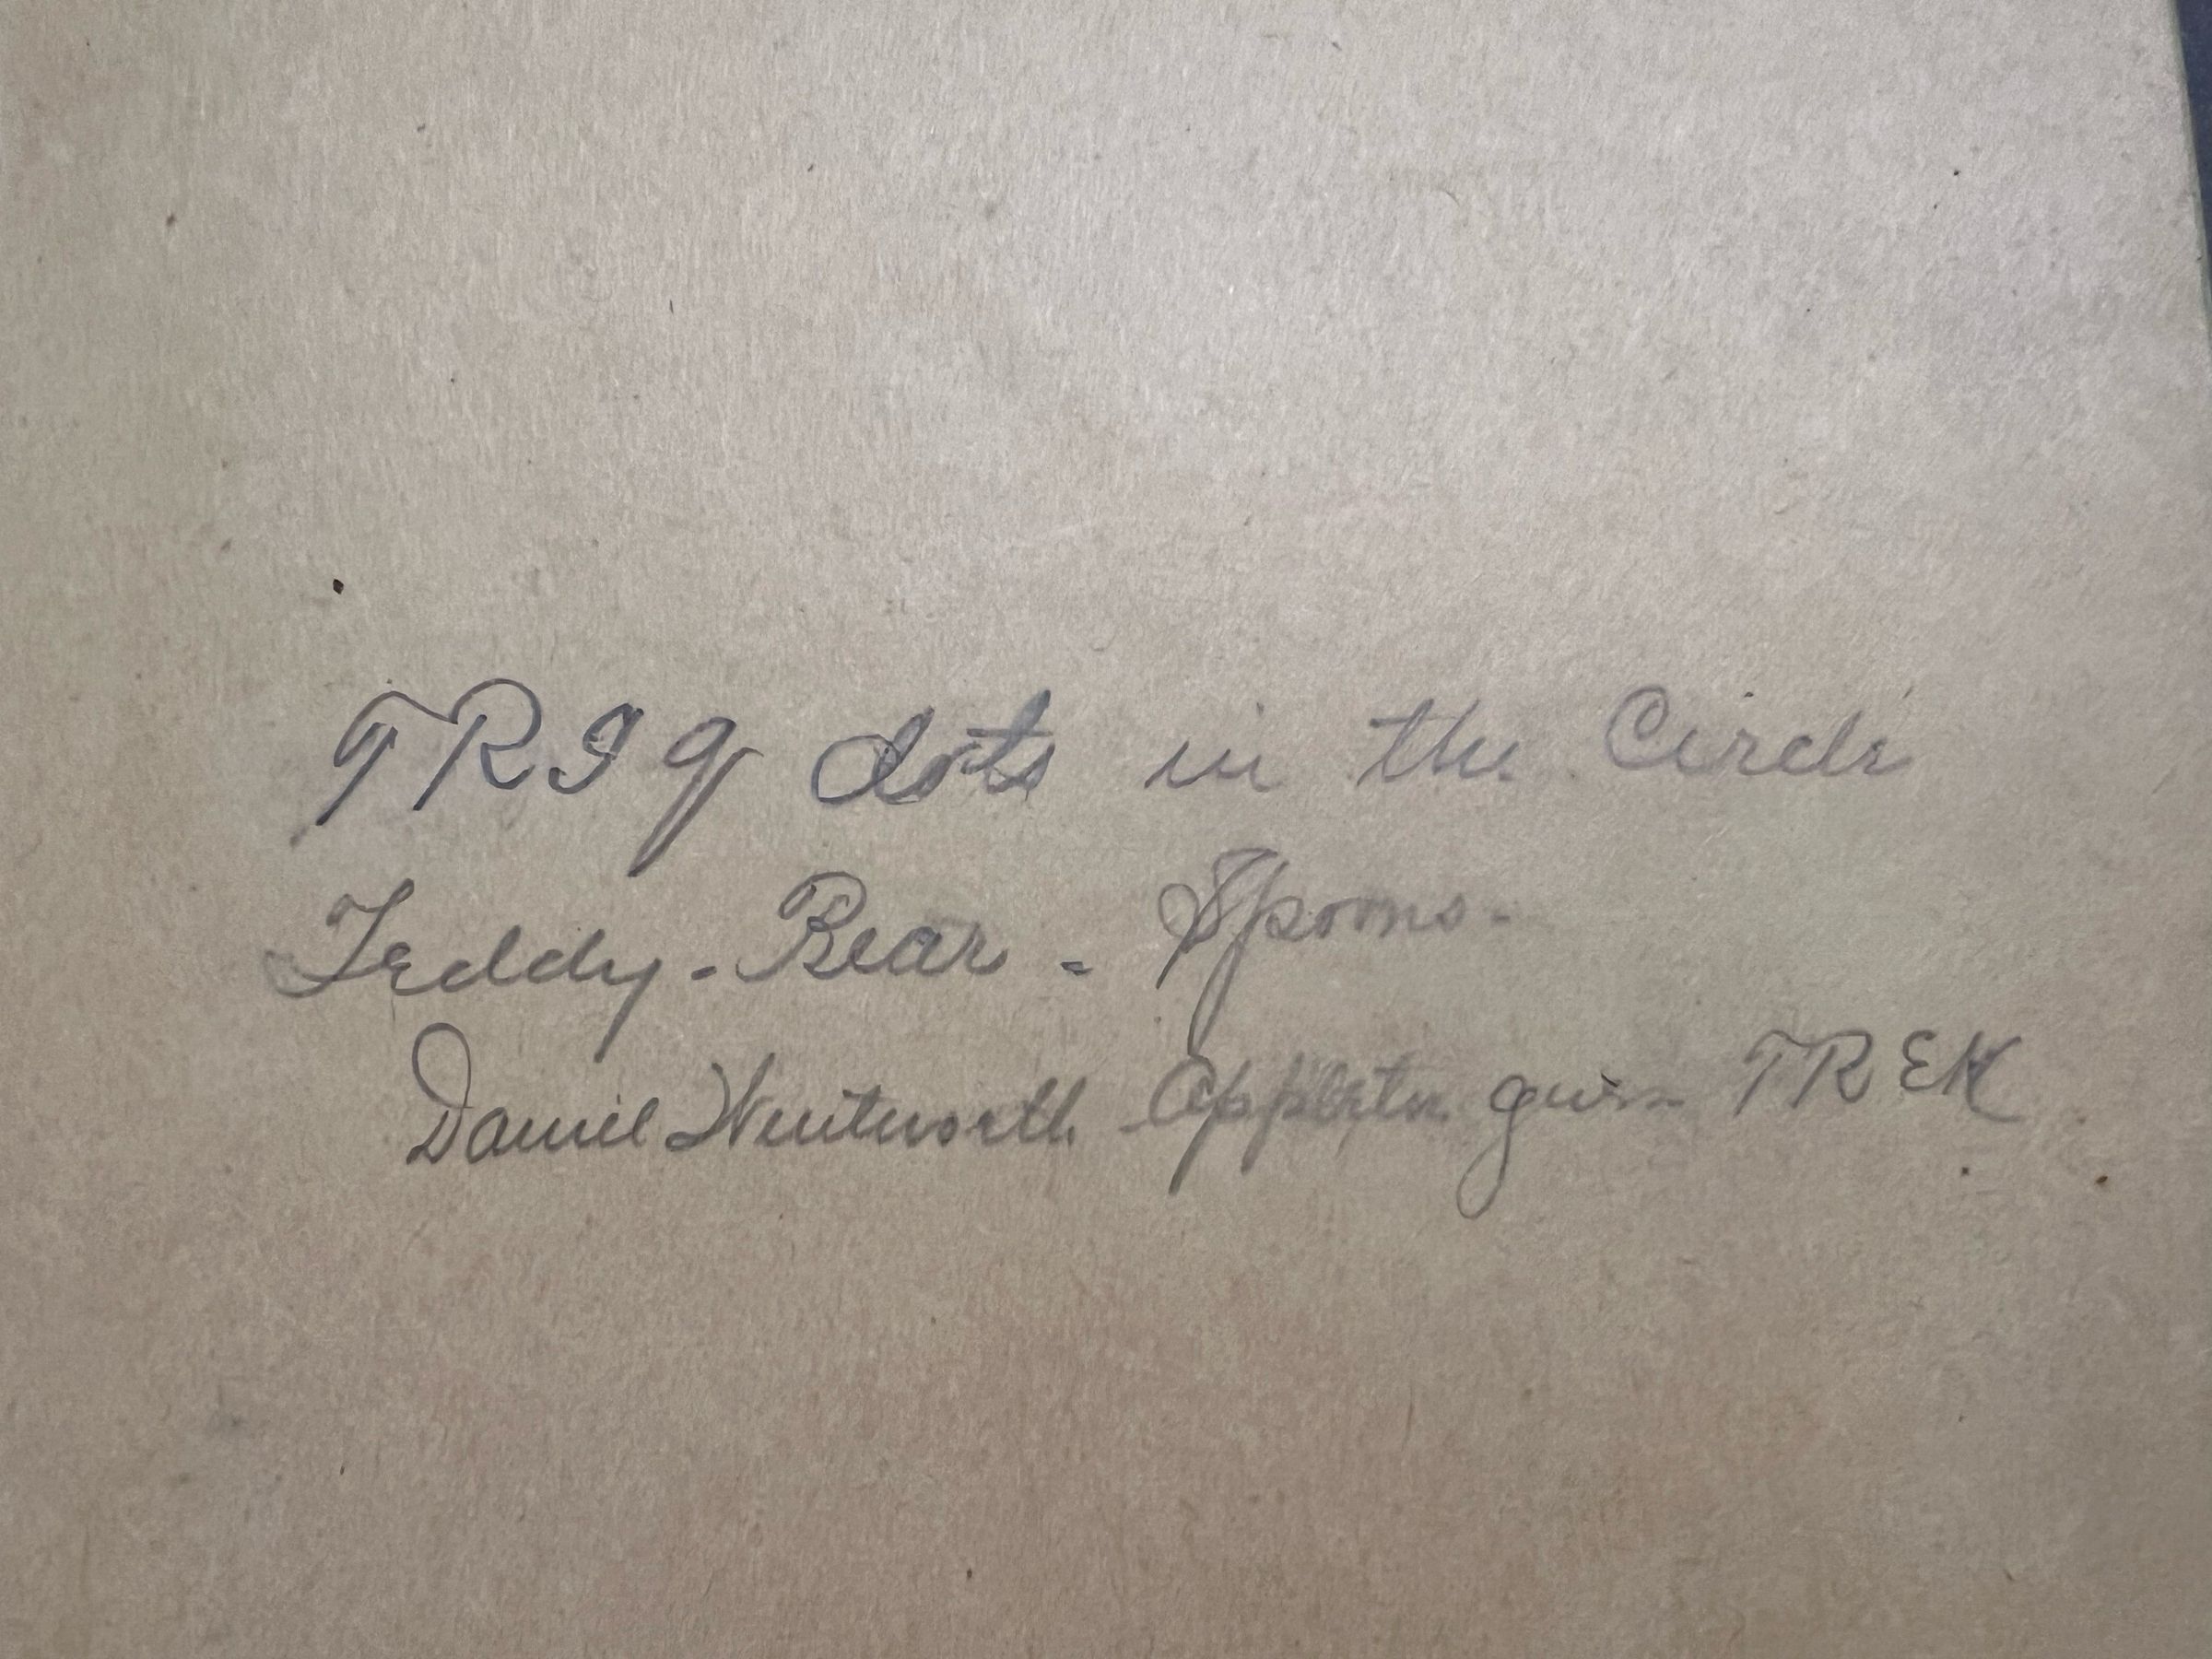 TRIq dots in the Circle
Teddy - Bear - Spoons -
Daniel Wentworth Appleton TREK